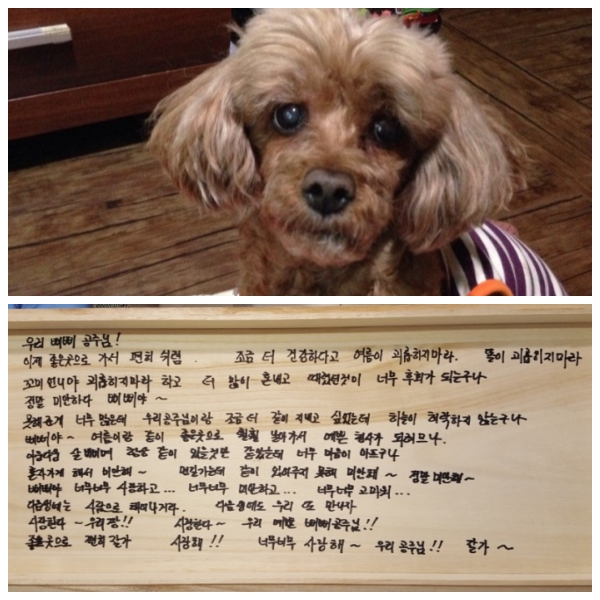 우리 삐삐 공주님!
이제 좋은곳으로 가서 편히 쉬렴. 조금 더 건강하다고 여름이 괴롭히지마라. 똘이 괴롭히지마라
꼬미언니야 괴롭히지마라 하고 더 많이 혼내고 때렸던것이 너무 후회가 되는구나
정말 미안하다 삐삐야~
못해준게 너무 많은데 우리공주님이랑 조금 더 같이 지내고 싶었는데 하늘이 허락하지 않는구나
삐삐야~ 여름이랑 같이 좋은곳으로 훨훨 날아가서 예쁜 천사가 되려므나.
삐삐야 항상 같이 있을것만 같았는데 너무 마음이 아프구나
혼자가게 해서 미안해~ 먼길가는데 같이 있어주지 못해 미안해~ 정말 미안해~
삐삐야 너무너무 사랑하고... 너무너무 미안하고... 너무너무 고마워...
다음생에는 사람으로 태어나거라. 다음생에도 우리 또 만나자
사랑한다~우리짱!! 사랑한다~ 우리 예쁜 삐삐공주님!!
좋은곳으로 편히 잘가 사랑해!! 너무너무 사랑해~ 우리공주님!! 잘가~